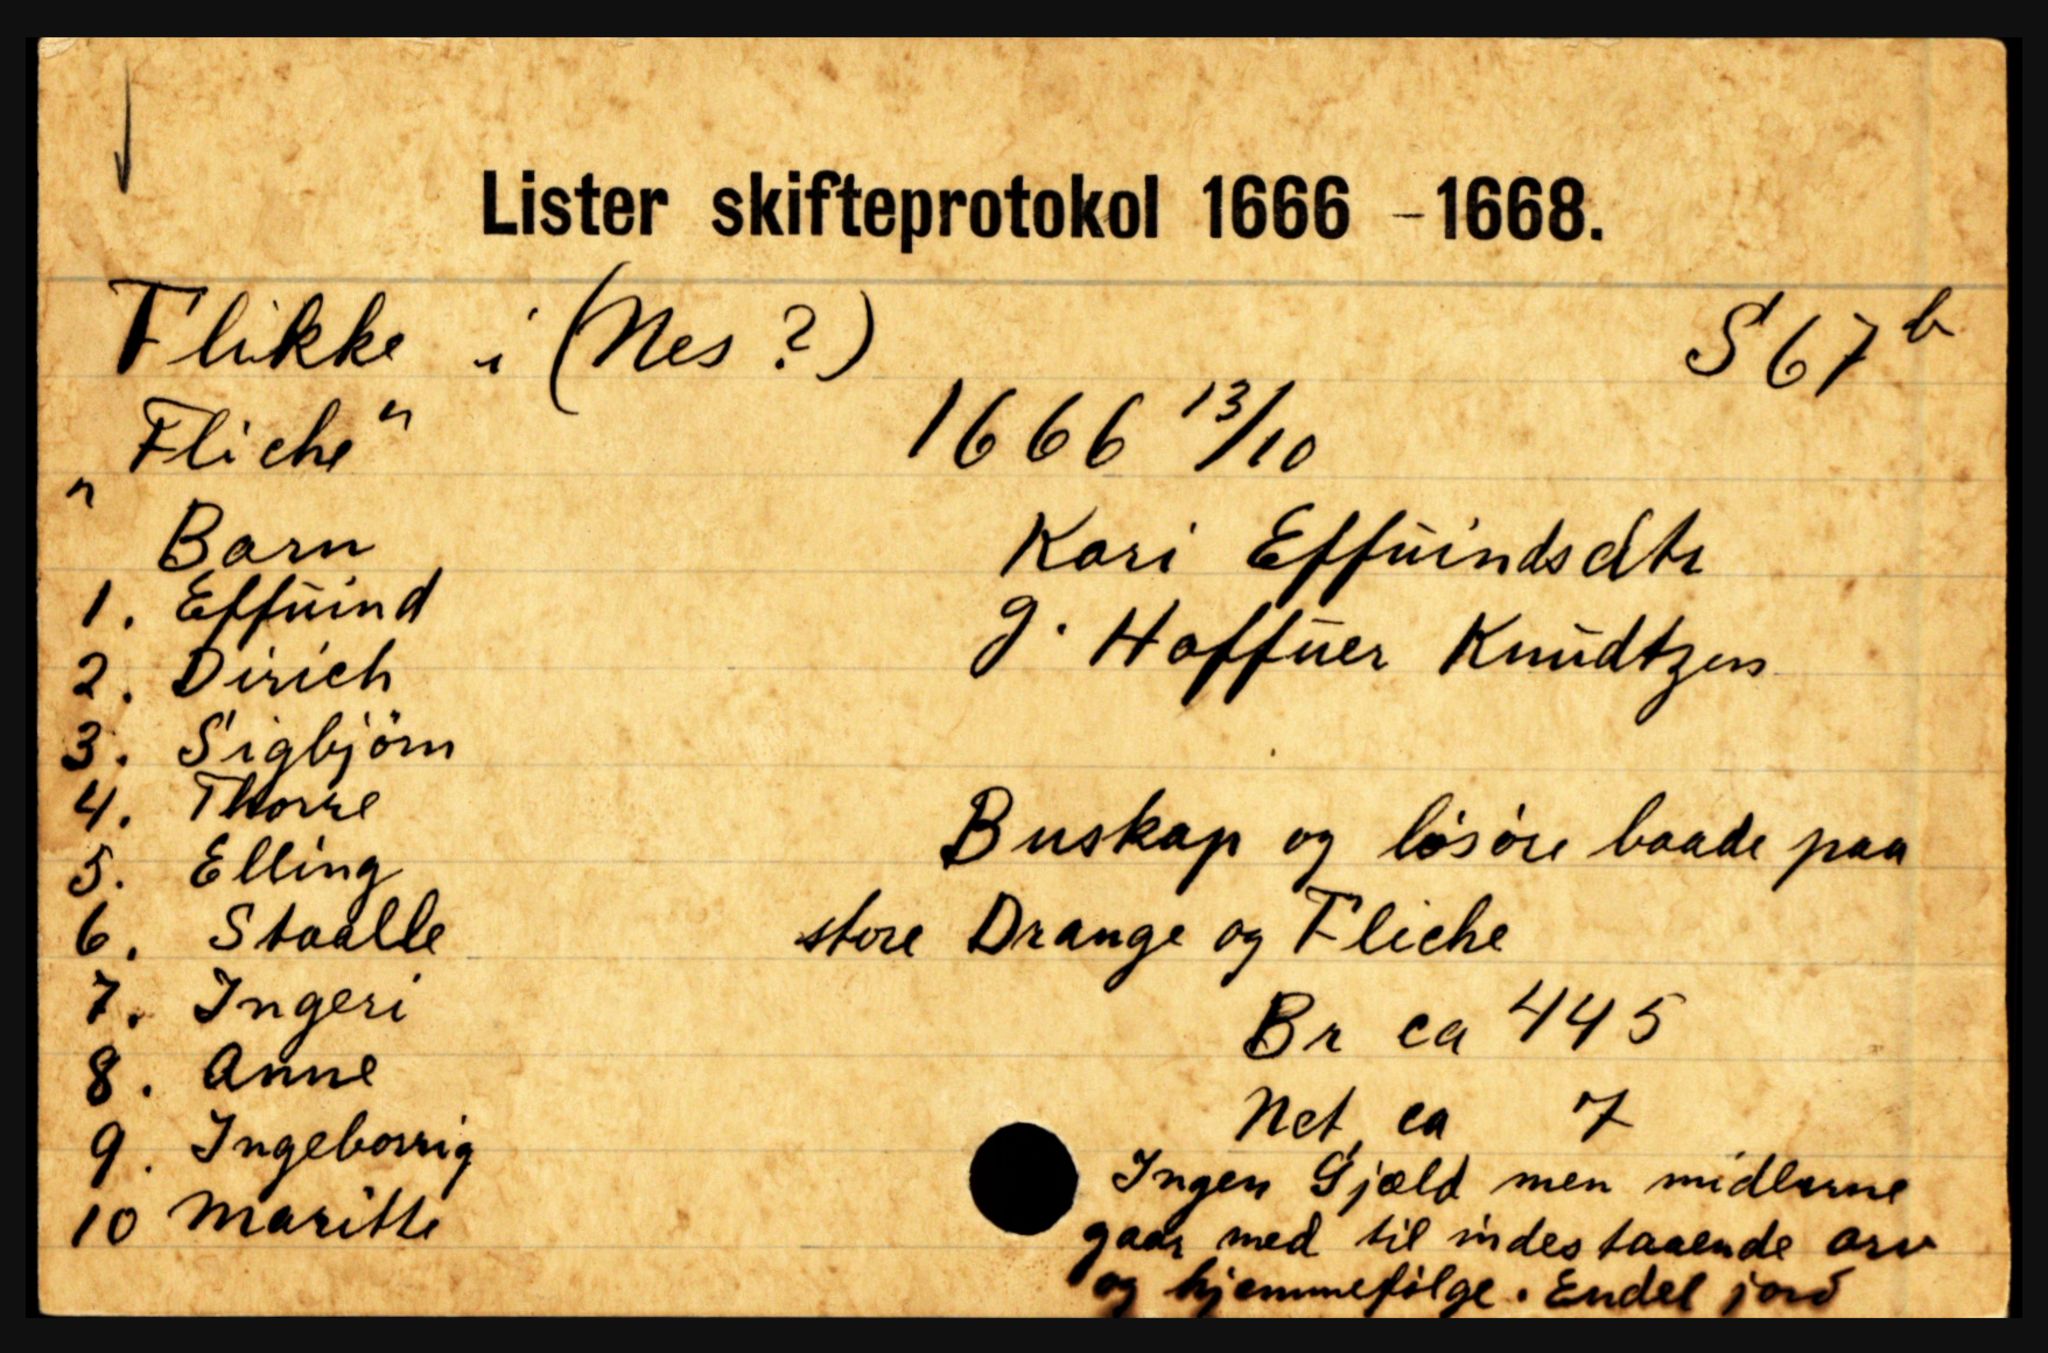 Lister skifteprotokol 1666 - 1668.
Flikke i (Nes?) S 67 b
" Fliche " 1666 13/10
Barn
1. Effuind
2. Dirich
3. Sigbjörn
4. Thorre
5. Elling
6. Staalle
7. Ingeri
8. Anne
9. Ingeborrig
10 Maritte
Kari Effüindsdtr
g. Haffüer Knüdtzen
Buskap og løsøre baade paa
store Drange og Fliche
Br ca 445
Net, ca 7
Ingen Gjæld men midlerne
gaar med til indestaaende arv
og hjemmefølge. Endel jord